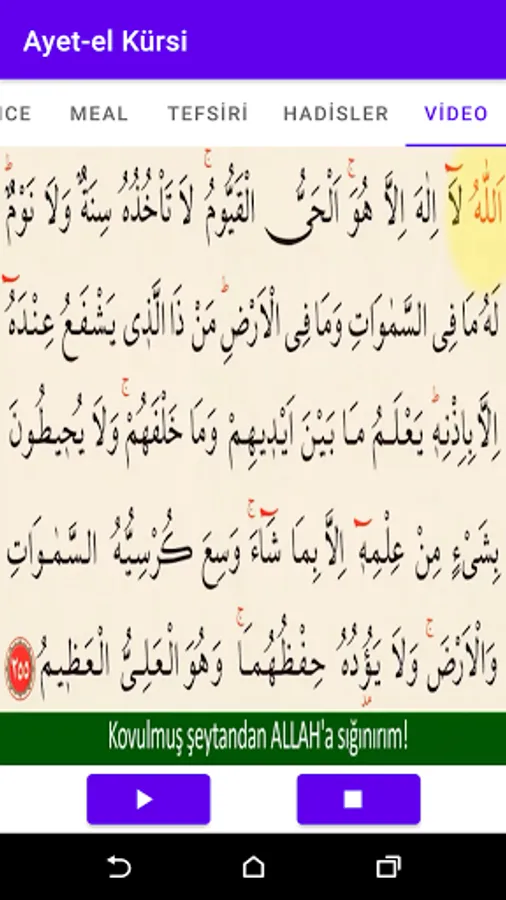 Ayet-el Kürsi
NCE MEAL TEFSİRİ HADİSLER VİDEO
اَللّٰهُ لَٓا اِلٰهَ اِلَّا هُوَۚ اَلْحَيُّ الْقَيُّومُۚ لَا تَأْخُذُهُ سِنَةٌ وَلَا نَوْمٌۜ
لَهُ مَا فِى السَّمٰوَاتِ وَمَا فِى الْاَرْضِۜ مَنْ ذَا الَّذٖى يَشْفَعُ عِنْدَهُٓ
اِلَّا بِاِذْنِهٖۜ يَعْلَمُ مَا بَيْنَ اَيْدٖيهِمْ وَمَا خَلْفَهُمْۚ وَلَا يُحٖيطُونَ
بِشَىْءٍ مِنْ عِلْمِهٖٓ اِلَّا بِمَا شَٓاءَۚ وَسِعَ كُرْسِيُّهُ السَّمٰوَاتِ
وَالْاَرْضَۚ وَلَا يَؤُدُهُ حِفْظُهُمَاۚ وَهُوَ الْعَلِىُّ الْعَظٖيمُ ٢٥٥
Kovulmuş şeytandan ALLAH'a sığınırım!